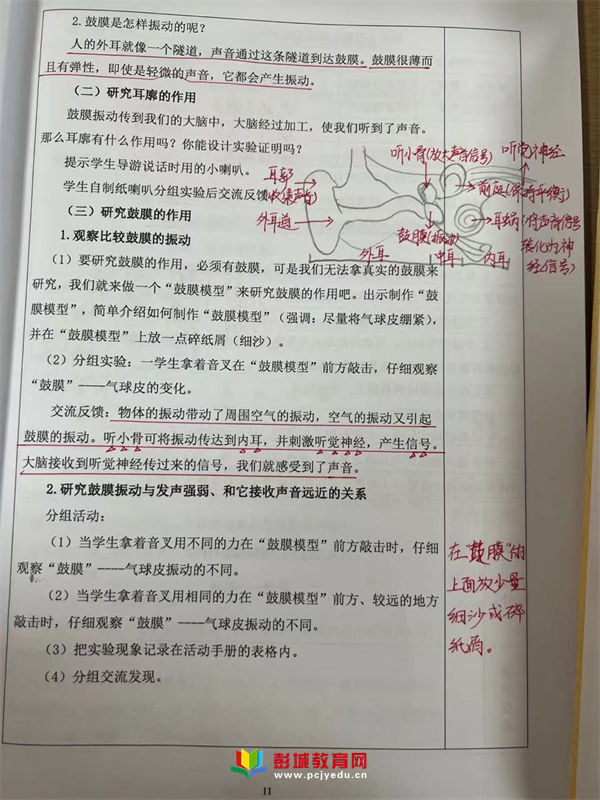 2.鼓膜是怎样振动的呢？
人的外耳就像一个隧道，声音通过这条隧道到达鼓膜。鼓膜很薄而
且有弹性，即使是轻微的声音，它都会产生振动。
（二）研究耳廓的作用
鼓膜振动传到我们的大脑中，大脑经过加工，使我们听到了声音。
那么耳廓有什么作用吗？你能设计实验证明吗？
提示学生导游说话时用的小喇叭。
学生自制纸喇叭分组实验后交流反馈
（三）研究鼓膜的作用
1.观察比较鼓膜的振动
（1）要研究鼓膜的作用，必须有鼓膜，可是我们无法拿真实的鼓膜来
研究，我们就来做一个“鼓膜模型”来研究鼓膜的作用吧。出示制作“鼓
膜模型”，简单介绍如何制作“鼓膜模型”（强调：尽量将气球皮绷紧），
并在“鼓膜模型”上放一点碎纸屑（细沙）。
（2）分组实验：一学生拿着音叉在“鼓膜模型”前方敲击，仔细观察
“鼓膜”----气球皮的变化。
交流反馈：物体的振动带动了周围空气的振动，空气的振动又引起
鼓膜的振动。听小骨可将振动传达到内耳，并刺激听觉神经，产生信号。
大脑接收到听觉神经传过来的信号，我们就感受到了声音。
2.研究鼓膜振动与发声强弱、和它接收声音远近的关系
分组活动：
（1）当学生拿着音叉用不同的力在“鼓膜模型”前方敲击时，仔细
观察“鼓膜”----气球皮振动的不同。
（2）当学生拿着音叉用相同的力在“鼓膜模型”前方、较远的地方
敲击时，仔细观察“鼓膜”----气球皮振动的不同。
（3）把实验现象记录在活动手册的表格内。
（4）分组交流发现。
听小骨(放大声音信号)
听觉神经
耳郭
(收集声音)
外耳道
前庭(保持平衡)
耳蜗(将声音信号
转化为神
经信号)
鼓膜(振动)
外耳
中耳
内耳
在“鼓膜”的
上面放少量
细沙或碎
纸屑。
彭城教育网
www.pcjyedu.cn
11